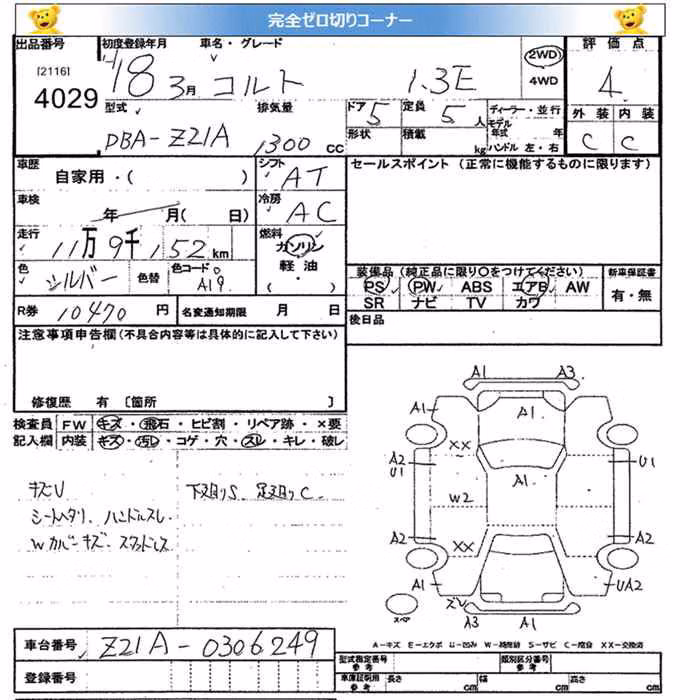 完全ゼロ切りコーナー
出品番号 初度登録年月 車名・グレード 評価点
[2116] 4029
18 3月 コルト 1.3E 2WD 4WD 4
型式 排気量 ドア 5 定員 5人 ディーラー・並行 外装 内装
DBA-Z21A 1300 cc 形状 積載 kg モデル年式 年 ハンドル 左・右 C C
車歴 シフト セールスポイント (正常に機能するものに限ります)
自家用・( ) AT
車検 年 月( 日) 冷房 AC
走行 燃料
11万9千152km ガソリン
軽油
・
色 シルバー 色替 色コード A19
装備品 (純正品に限り○をつけてください) 新車保証書
PS PW ABS エアB AW 有・無
SR ナビ TV カワ
R券 10470円 名変通知期限 月 日 後日品
注意事項申告欄 (不具合内容等は具体的に記入して下さい)
修復歴 有 〔箇所 〕
検査員 FW キズ・飛石・ヒビ割・リペア跡・×要
記入欄 内装 キズ・汚レ・コゲ・穴・スレ・キレ・破レ
キズU 下回りS 足回りC
シートヘタリ ハンドルスレ
Wカバーキズ スタッドレス
A1 A3
A1 A1
XX
A2 U1 U1
A1
W2
A2 A2
XX
A1 UA2
ズレ
スペア A3 A1
A-キズ E-エクボ U-凹み S-サビ C-腐食 XX-交換済
車台番号 Z21A-0306249
型式指定番号 参考 類別区分番号 参考
登録番号 車庫証明用 参考 長さ cm 幅 cm 高さ cm